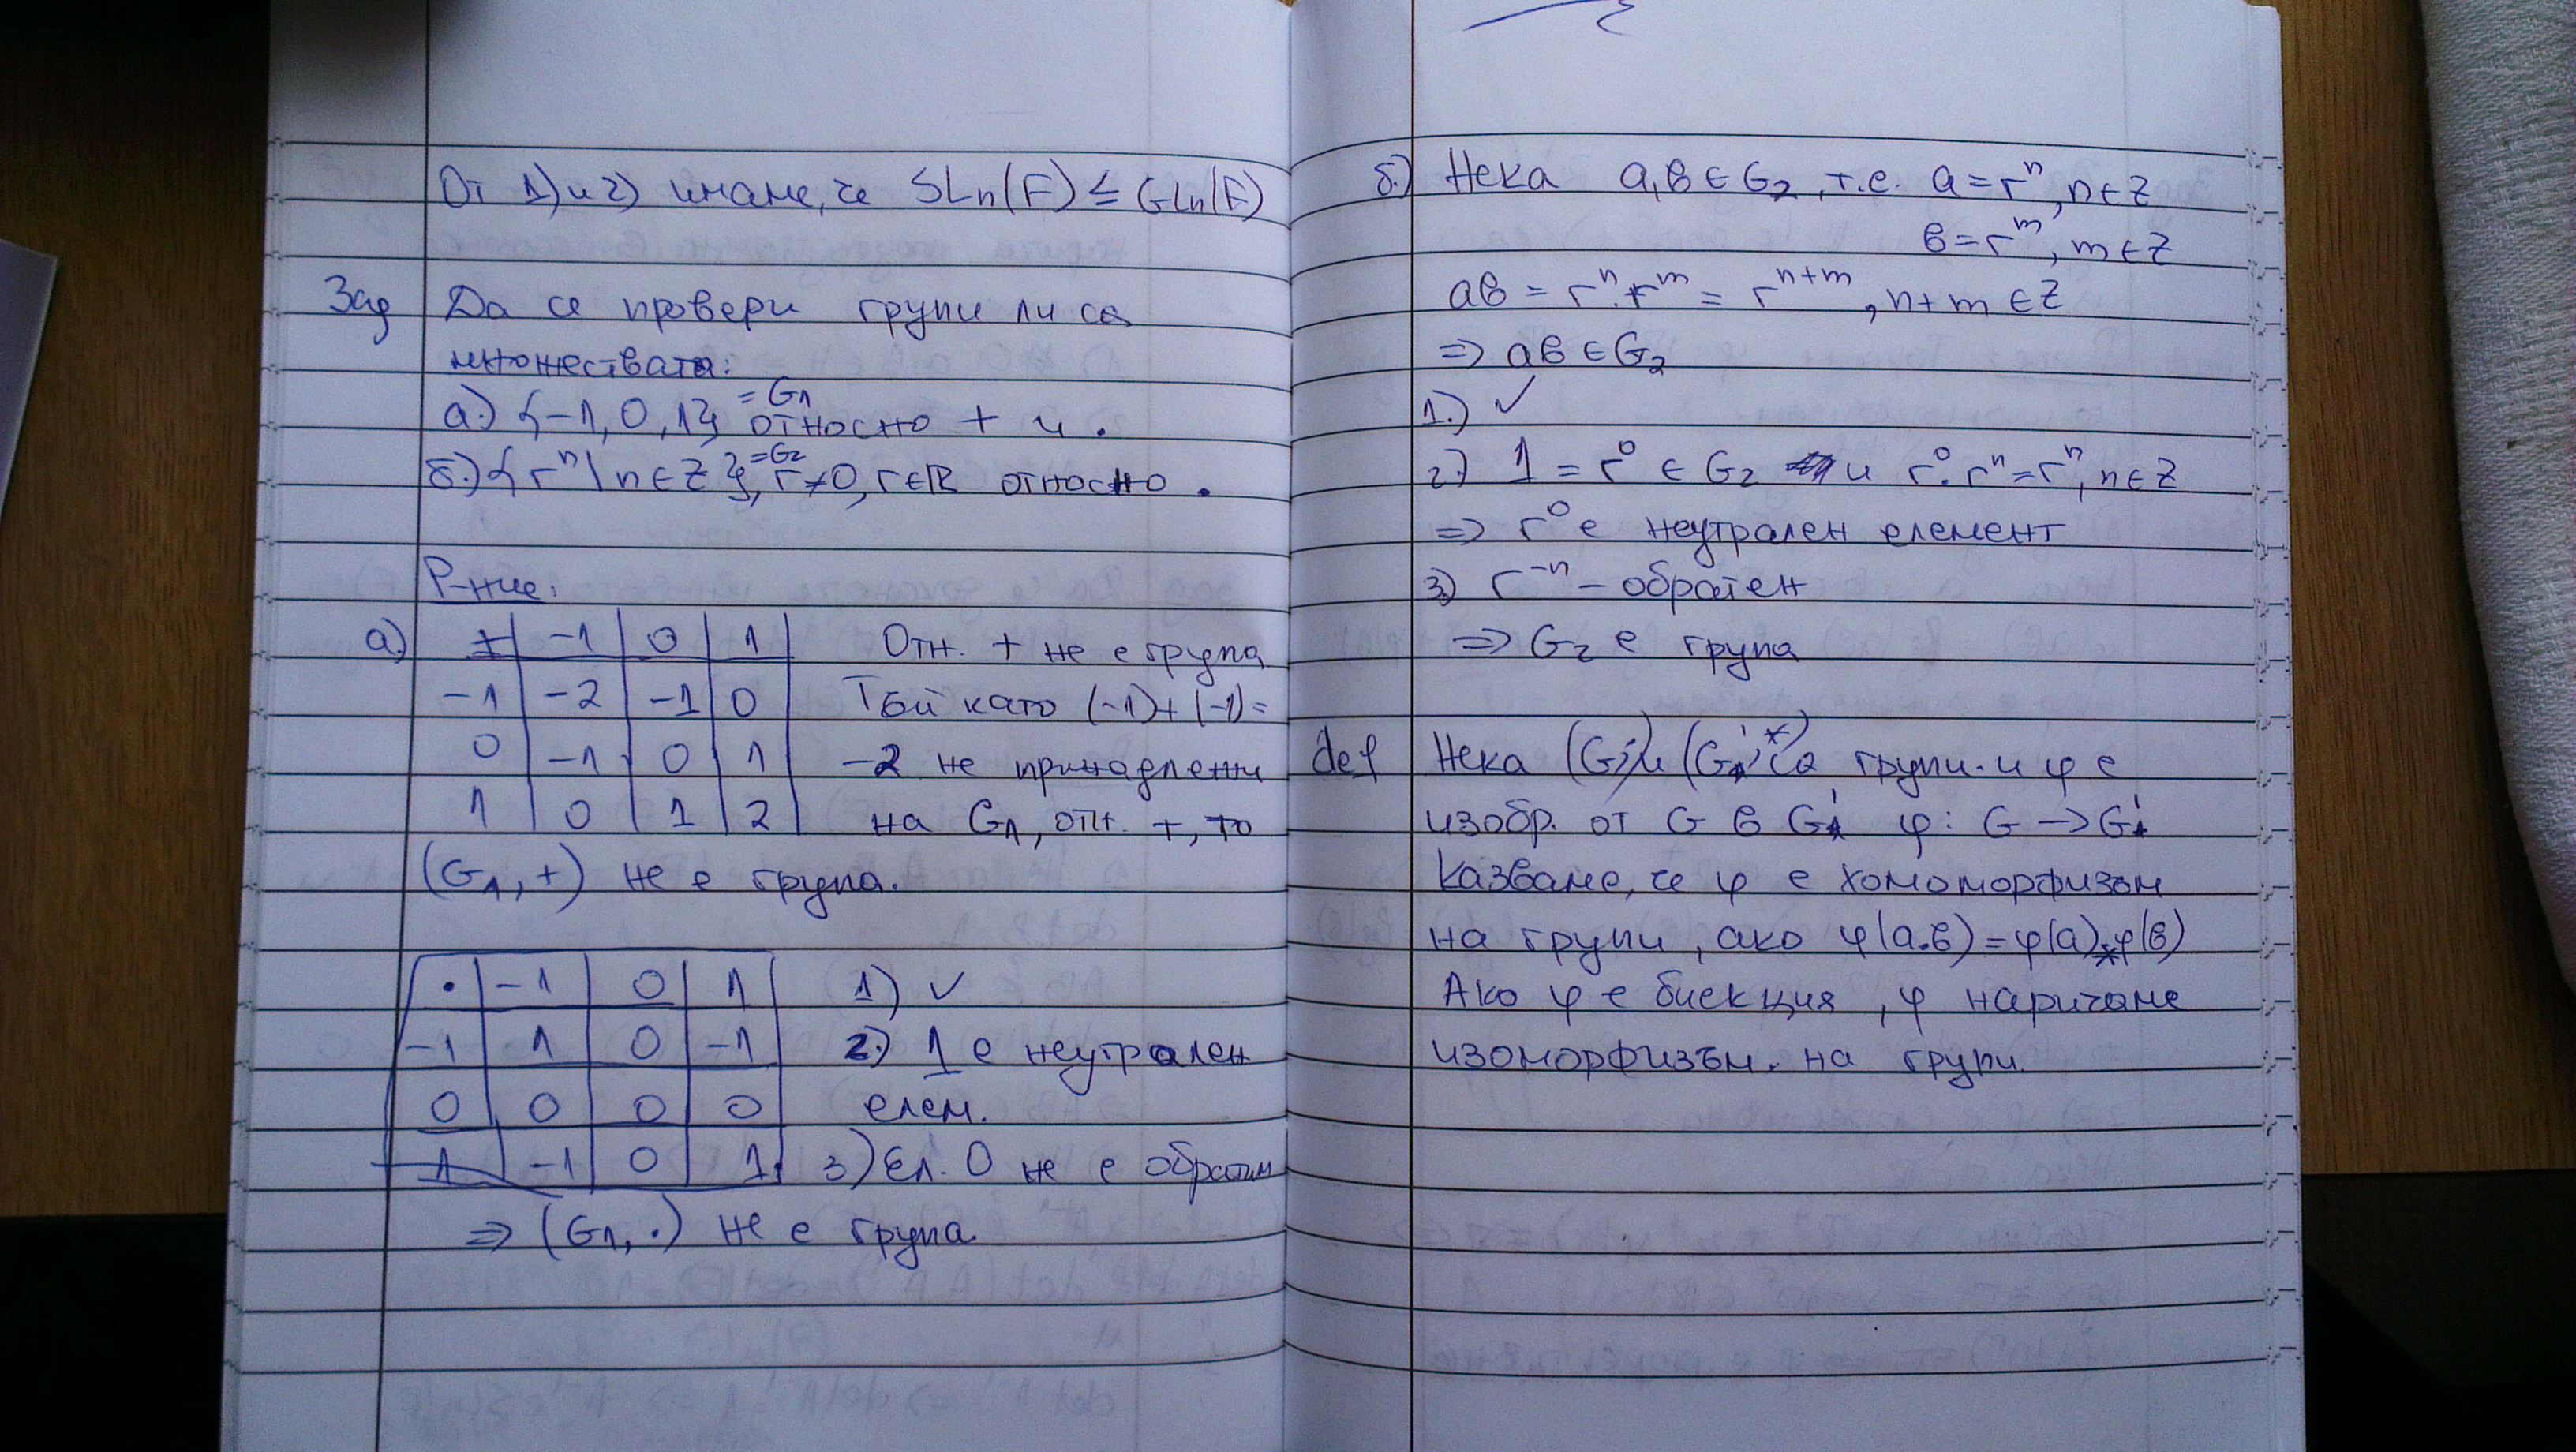 От 1) и 2) имаме, че SLn(F) ≤ GLn(F)
Зад Да се провери групи ли са
множествата:
а.) {-1, 0, 1} = G1 относно + и .
б.) {rⁿ | n ∈ Z} = G2, r ≠ 0, r ∈ R относно .
Р-ние:
а) + | -1 | 0 | 1 Отн. + не е група
-1 | -2 | -1 | 0 Тъй като (-1)+(-1)=
0 | -1 | 0 | 1 -2 не принадлежи
1 | 0 | 1 | 2 на G1, отн. +, то
(G1, +) не е група.
. | -1 | 0 | 1 1) ✓
-1 | 1 | 0 | -1 2.) 1 е неутрален
0 | 0 | 0 | 0 елем.
1 | -1 | 0 | 1 3) Ел. 0 не е обратим
=> (G1, .) не е група
б.) Нека a, b ∈ G2, т.е. a = rⁿ, n ∈ Z
b = rᵐ, m ∈ Z
ab = rⁿ.rᵐ = rⁿ⁺ᵐ, n+m ∈ Z
=> ab ∈ G2
1.) ✓
2.) 1 = r⁰ ∈ G2 и r⁰.rⁿ = rⁿ, n ∈ Z
=> r⁰ е неутрален елемент
3) r⁻ⁿ - обратен
=> G2 е група
def Нека (G, .) и (G', *) са групи. и φ е
изобр. от G в G' φ: G → G'
Казваме, че φ е хомоморфизъм
на групи, ако φ(a.b) = φ(a)*φ(b)
Ако φ е биекция, φ наричаме
изоморфизъм. на групи.